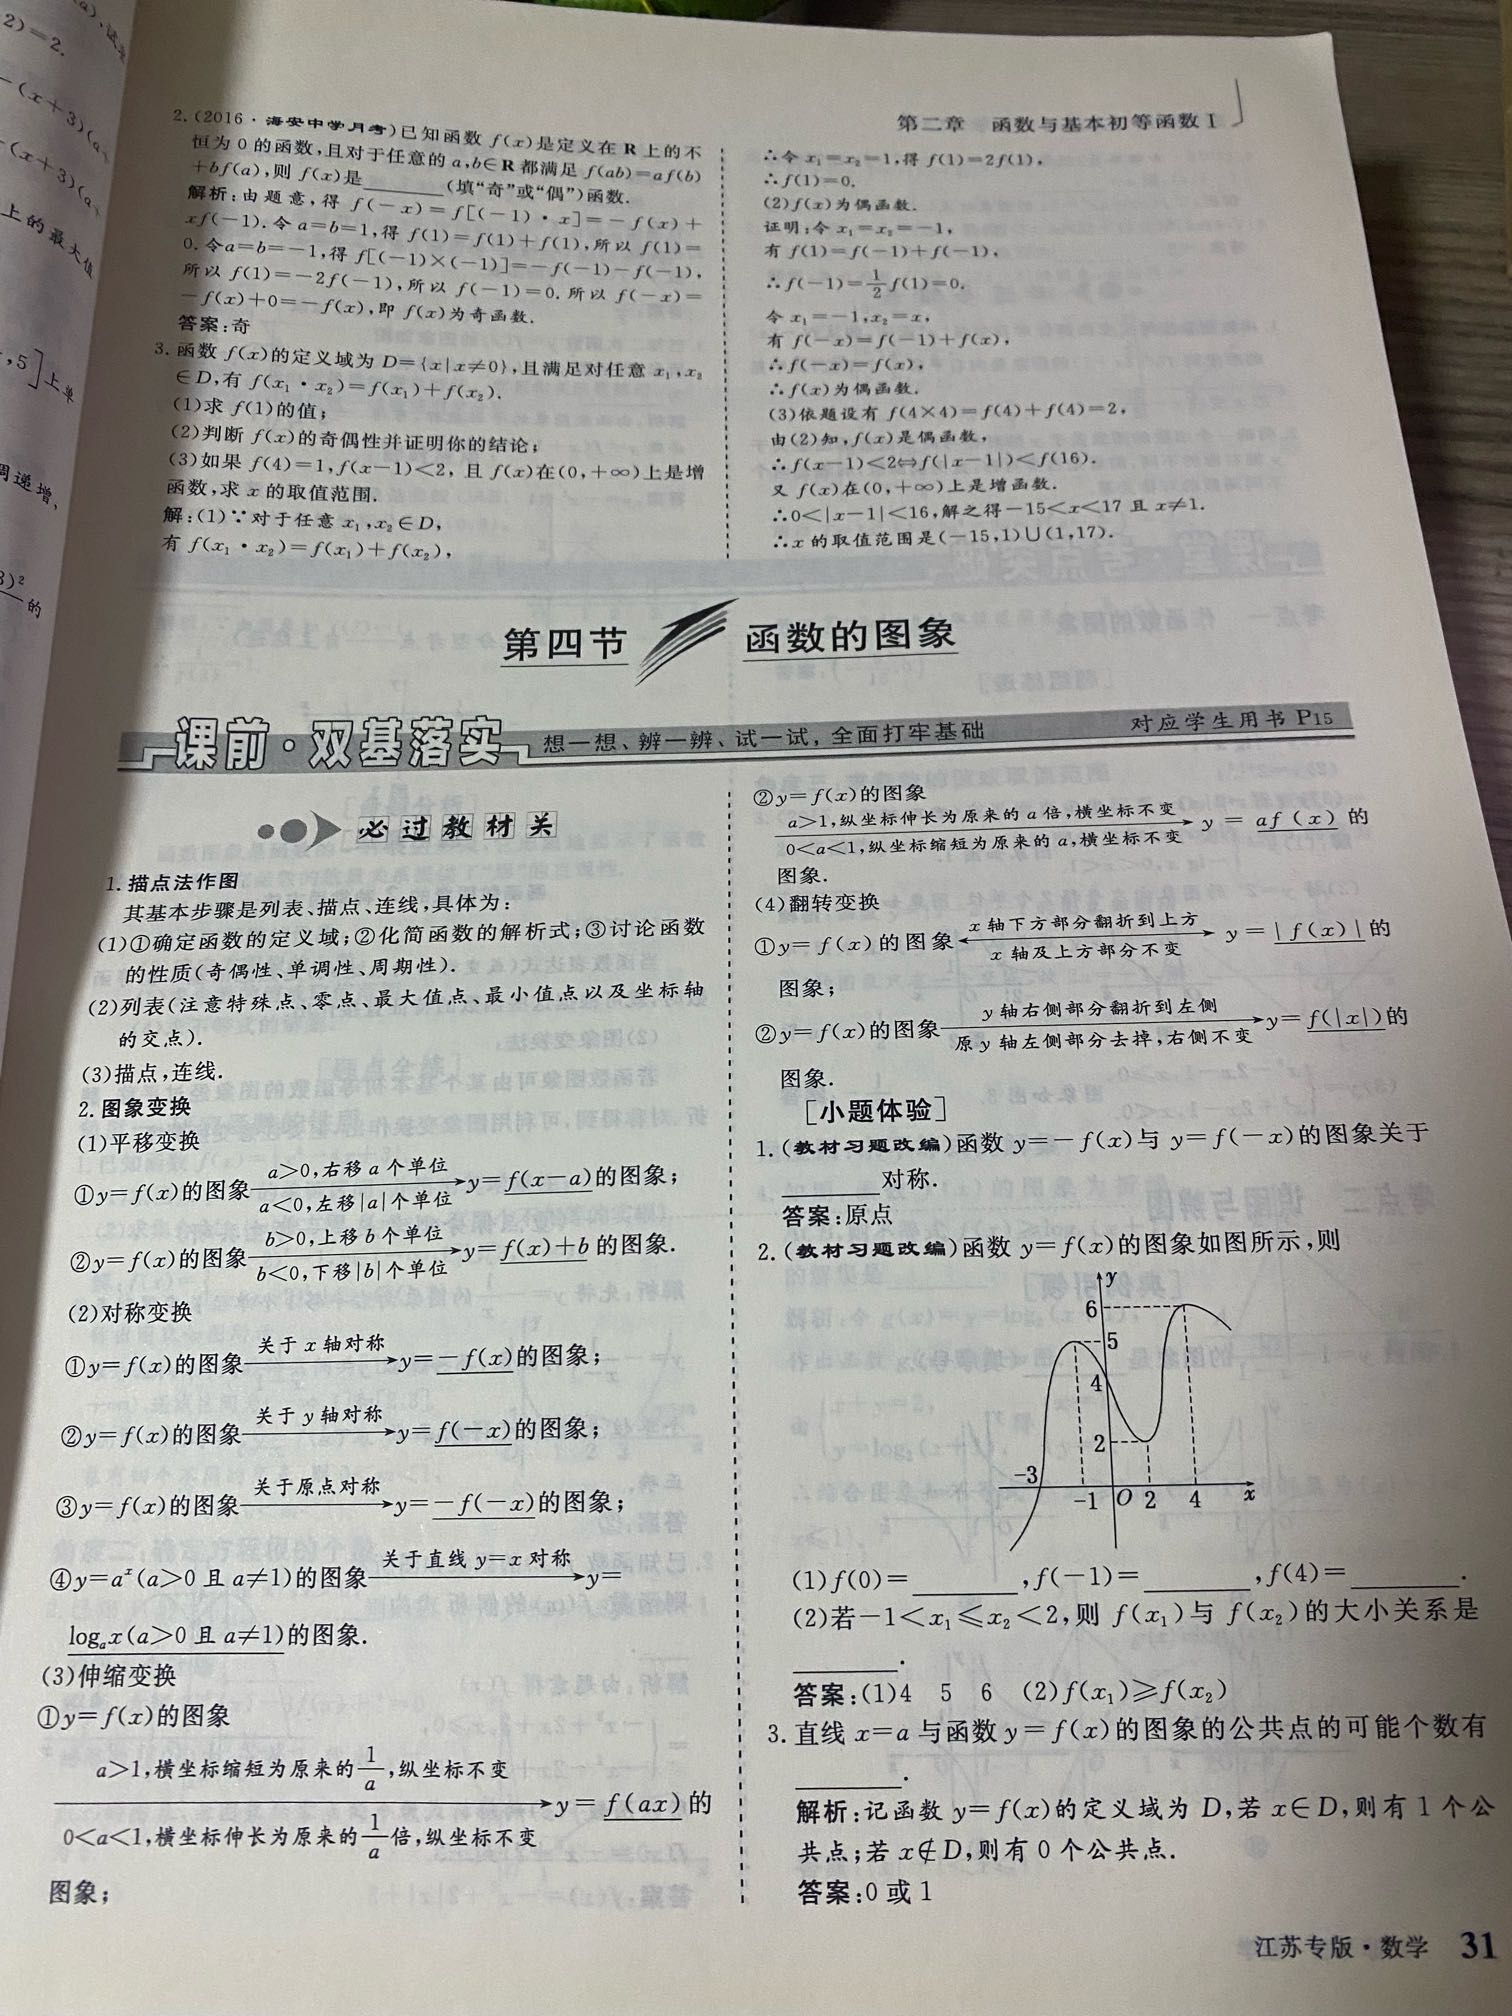 2)=2.
-(x+3)(a
-(x+3)(a
上的最大值
,5]上单
周递增,
的
第二章 函数与基本初等函数Ⅰ
2.(2016·海安中学月考)已知函数 f(x)是定义在 R 上的不
恒为 0 的函数,且对于任意的 a,b∈R 都满足 f(ab)=af(b)
+bf(a),则 f(x)是________(填“奇”或“偶”)函数.
解析:由题意,得 f(-x)=f[(-1)·x]=-f(x)+
xf(-1).令 a=b=1,得 f(1)=f(1)+f(1),所以 f(1)=
0.令a=b=-1,得 f[(-1)×(-1)]=-f(-1)-f(-1),
所以 f(1)=-2f(-1),所以 f(-1)=0.所以 f(-x)=
-f(x)+0=-f(x),即 f(x)为奇函数.
答案:奇
3.函数 f(x)的定义域为 D={x|x≠0},且满足对任意 x₁,x₂
∈D,有 f(x₁·x₂)=f(x₁)+f(x₂).
(1)求 f(1)的值;
(2)判断 f(x)的奇偶性并证明你的结论;
(3)如果 f(4)=1,f(x-1)<2, 且 f(x)在(0,+∞)上是增
函数,求 x 的取值范围.
解:(1)∵对于任意 x₁,x₂∈D,
有 f(x₁·x₂)=f(x₁)+f(x₂),
∴令 x₁=x₂=1,得 f(1)=2f(1),
∴f(1)=0.
(2)f(x)为偶函数.
证明:令 x₁=x₂=-1,
有 f(1)=f(-1)+f(-1),
∴f(-1)=1/2 f(1)=0.
令 x₁=-1,x₂=x,
有 f(-x)=f(-1)+f(x),
∴f(-x)=f(x),
∴f(x)为偶函数.
(3)依题设有 f(4×4)=f(4)+f(4)=2,
由(2)知,f(x)是偶函数,
∴f(x-1)<2⇔f(|x-1|)<f(16).
又 f(x)在(0,+∞)上是增函数.
∴0<|x-1|<16,解之得-15<x<17 且 x≠1.
∴x 的取值范围是(-15,1)∪(1,17).
第四节 函数的图象
课前·双基落实 想一想、辨一辨、试一试,全面打牢基础 对应学生用书 P15
必过教材关
1.描点法作图
其基本步骤是列表、描点、连线,具体为:
(1)①确定函数的定义域;②化简函数的解析式;③讨论函数
的性质(奇偶性、单调性、周期性).
(2)列表(注意特殊点、零点、最大值点、最小值点以及坐标轴
的交点).
(3)描点,连线.
2.图象变换
(1)平移变换
①y=f(x)的图象 a>0,右移 a 个单位 a<0,左移|a|个单位 y=f(x-a)的图象;
②y=f(x)的图象 b>0,上移 b 个单位 b<0,下移|b|个单位 y=f(x)+b 的图象.
(2)对称变换
①y=f(x)的图象 关于 x 轴对称 y=-f(x)的图象;
②y=f(x)的图象 关于 y 轴对称 y=f(-x)的图象;
③y=f(x)的图象 关于原点对称 y=-f(-x)的图象;
④y=aˣ(a>0 且 a≠1)的图象 关于直线 y=x 对称 y=
logₐx(a>0 且 a≠1)的图象.
(3)伸缩变换
①y=f(x)的图象
a>1,横坐标缩短为原来的1/a,纵坐标不变
y=f(ax)的
0<a<1,横坐标伸长为原来的1/a倍,纵坐标不变
图象;
②y=f(x)的图象
a>1,纵坐标伸长为原来的 a 倍,横坐标不变
y=af(x)的
0<a<1,纵坐标缩短为原来的 a,横坐标不变
图象.
(4)翻转变换
①y=f(x)的图象 x 轴下方部分翻折到上方 x 轴及上方部分不变 y=|f(x)|的
图象;
②y=f(x)的图象 y 轴右侧部分翻折到左侧 原 y 轴左侧部分去掉,右侧不变 y=f(|x|)的
图象.
[小题体验]
1.(教材习题改编)函数 y=-f(x)与 y=f(-x)的图象关于
________对称.
答案:原点
2.(教材习题改编)函数 y=f(x)的图象如图所示,则
y
6
5
4
2
-3
-1 O 2 4 x
(1)f(0)=________,f(-1)=________,f(4)=________.
(2)若-1<x₁≤x₂<2,则 f(x₁)与 f(x₂)的大小关系是
________.
答案:(1)4 5 6 (2)f(x₁)≥f(x₂)
3.直线 x=a 与函数 y=f(x)的图象的公共点的可能个数有
________.
解析:记函数 y=f(x)的定义域为 D,若 x∈D,则有 1 个公
共点;若 x∉D,则有 0 个公共点.
答案:0 或 1
江苏专版·数学 31